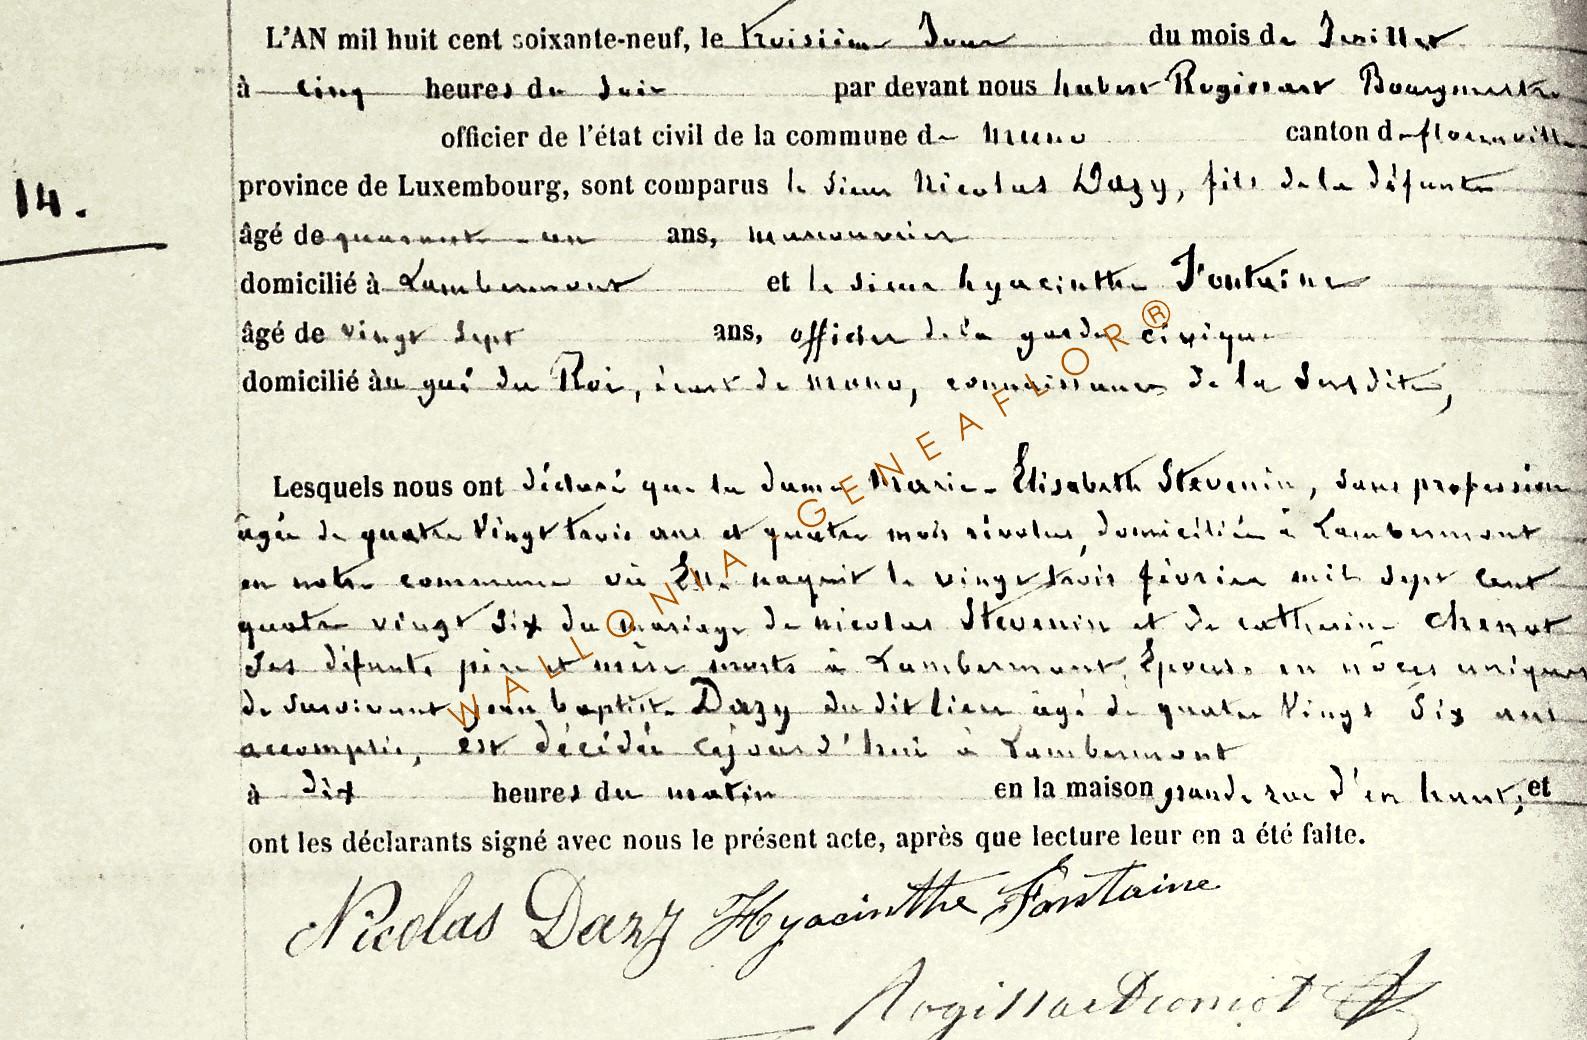 L'AN mil huit cent soixante-neuf, le troisième Jour du mois de Juillet
à cinq heures du soir par devant nous hubert Rogissart Bourgmestre
officier de l'état civil de la commune de muno canton de florenville
14.
province de Luxembourg, sont comparus le sieur Nicolas Dazy, fils de la défunte
âgé de quarante-un ans, manouvrier
domicilié à Lambermont et le sieur hyacinthe Fontaine
âgé de vingt sept ans, officier de la garde civique
domicilié au gué du Roi, écart de muno, connaissances de la susdite,
Lesquels nous ont déclaré que la dame Marie-Elisabeth Stevenin, sans profession
âgée de quatre Vingt trois ans et quatre mois révolus, domiciliée à Lambermont
en notre commune où Elle naquit le vingt trois février mil sept cent
quatre vingt six du mariage de nicolas Stevenin et de catherine chenot
ses défunts père et mère morts à Lambermont, Epouse en nôces uniques
de survivant Jean baptiste Dazy du dit lieu âgé de quatre Vingt Six ans
accomplis, est décédée cejourd'hui à Lambermont
à dix heures du matin en la maison grande rue d'en haut, et
ont les déclarants signé avec nous le présent acte, après que lecture leur en a été faite.
Nicolas Dazy Hyacinthe Fontaine
WALLONIA GENEAFLOR®